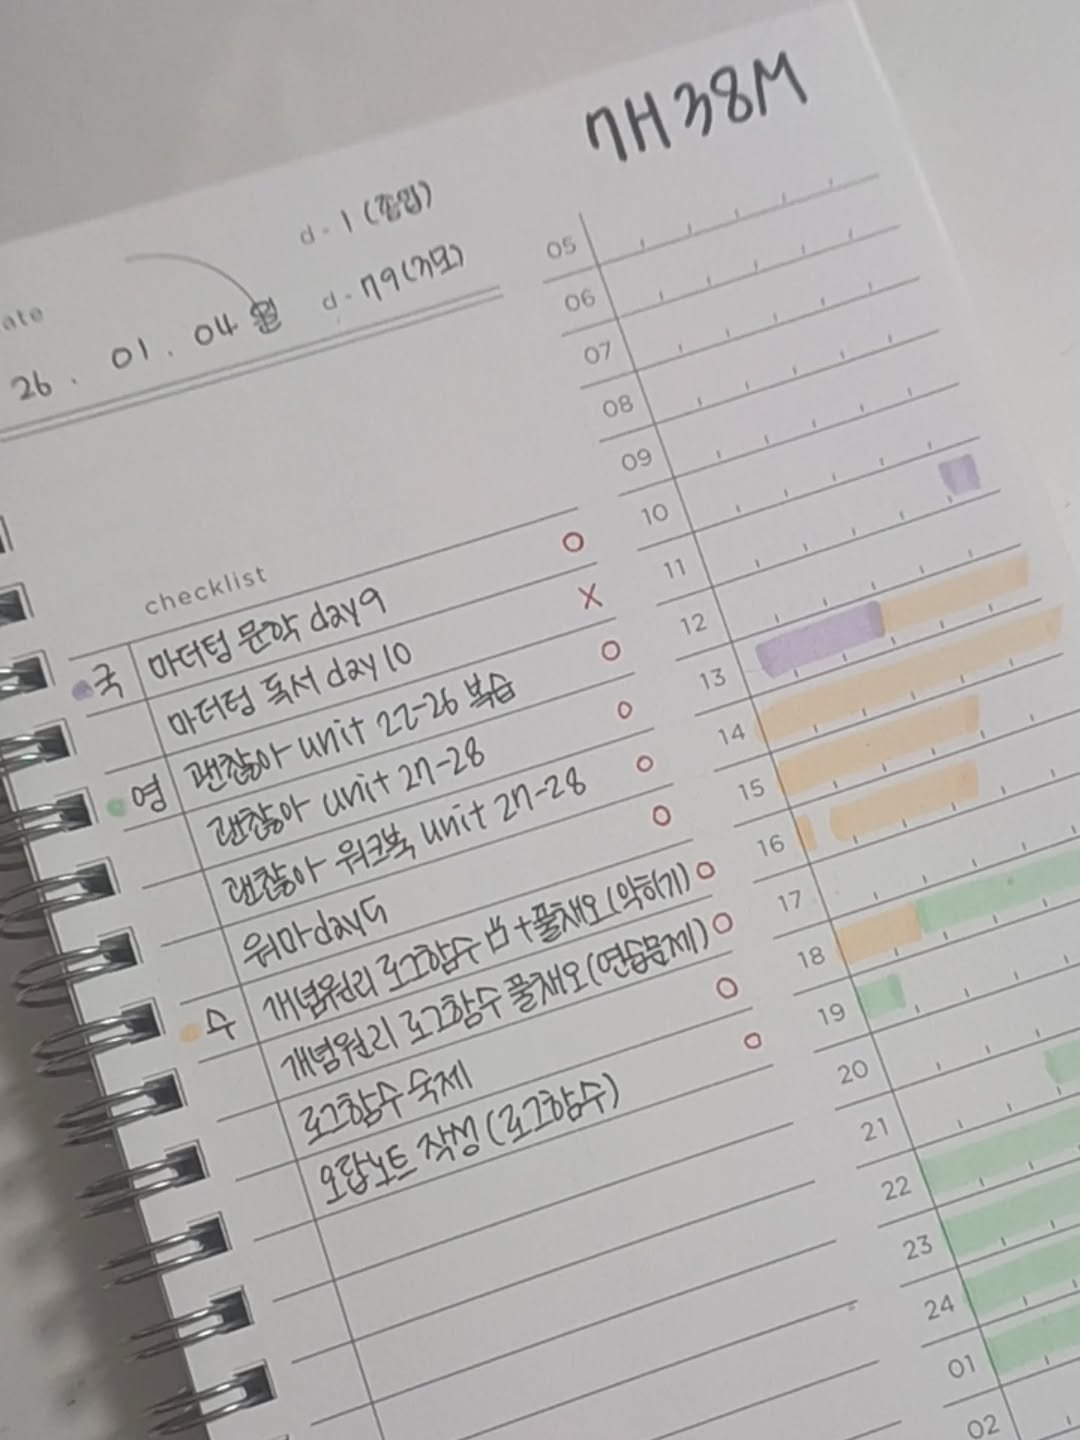 7H 38M
d-1 (졸업)
d-79 (3모)
ate
26 . 01 . 04 월
checklist
국 마더텅 문학 day9 O
마더텅 독서 day10 X
영 괜찮아 unit 22-26 복습 O
괜찮아 unit 27-28 O
괜찮아 워크북 unit 27-28 O
워마 day5 O
수 개념원리 로그함수 +풀채오(익히기) O
개념원리 로그함수 풀채오(연습문제) O
로그함수 숙제 O
오답노트 작성 (로그함수) O
05
06
07
08
09
10
11
12
13
14
15
16
17
18
19
20
21
22
23
24
01
02